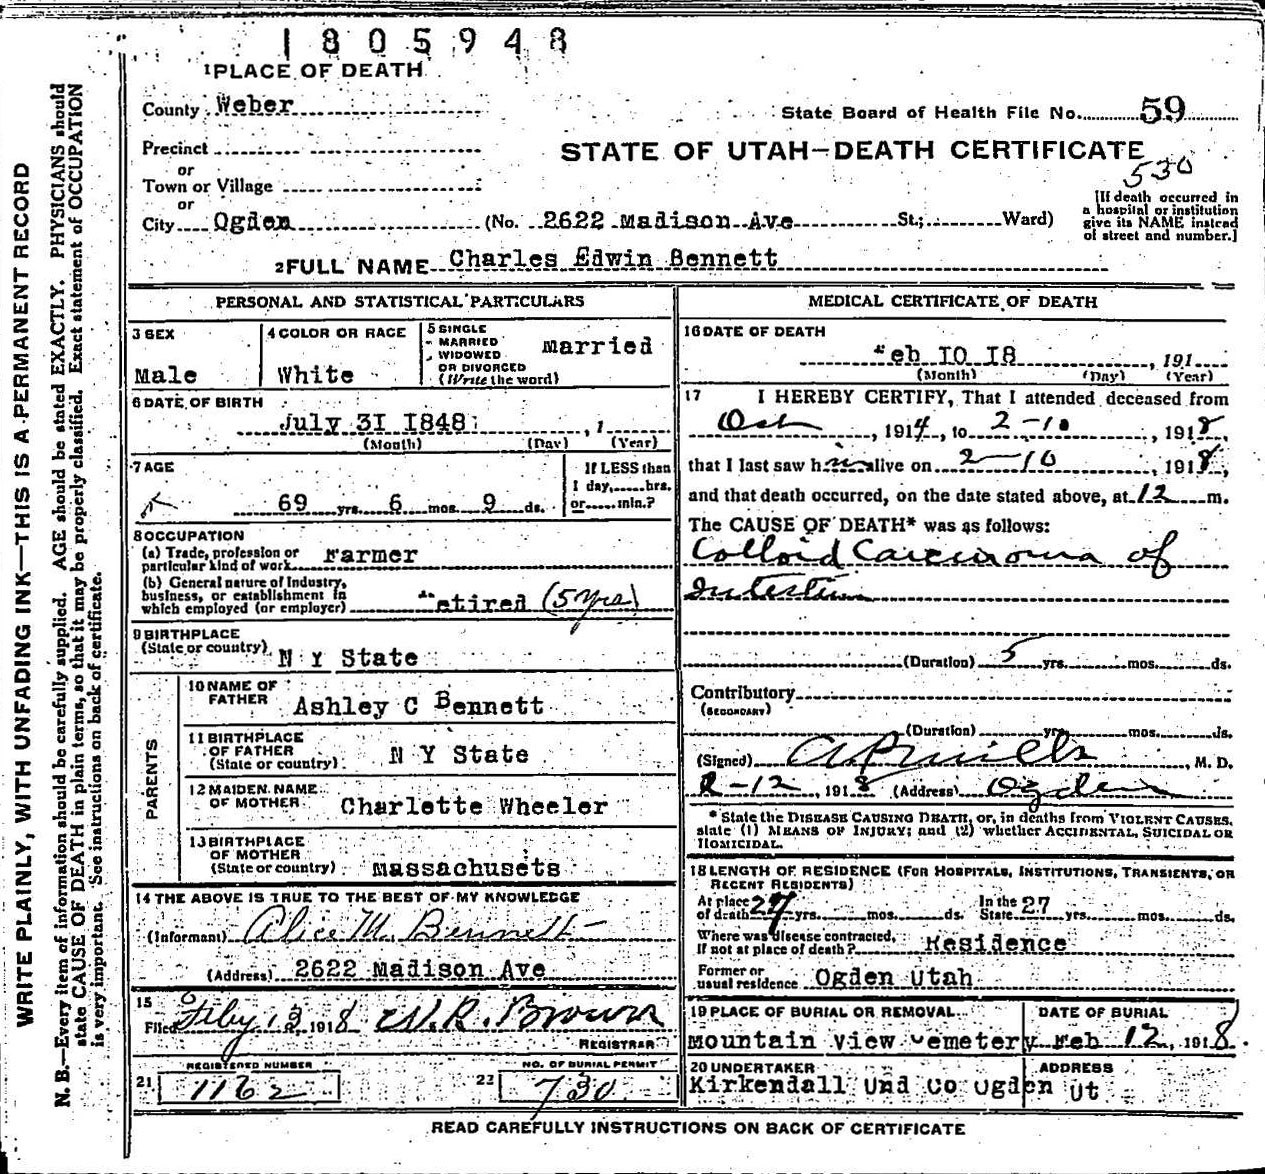 1805948
1 PLACE OF DEATH
County Weber
State Board of Health File No. 59
Precinct
STATE OF UTAH—DEATH CERTIFICATE
or
530
Town or Village
or
City Ogden (No. 2622 Madison Ave St.; Ward)
[If death occurred in
a hospital or institution
give its NAME instead
of street and number.]
2 FULL NAME Charles Edwin Bennett
PERSONAL AND STATISTICAL PARTICULARS
3 SEX
Male
4 COLOR OR RACE
White
5 SINGLE
MARRIED
WIDOWED
OR DIVORCED
(Write the word)
Married
6 DATE OF BIRTH
July 3I I848 , 1
(Month) (Day) (Year)
7 AGE
69 yrs. 6 mos. 9 ds.
If LESS than
1 day, hrs.
or min.?
8 OCCUPATION
(a) Trade, profession or
particular kind of work Farmer
(b) General nature of Industry,
business, or establishment in
which employed (or employer) Retired (5 yrs)
9 BIRTHPLACE
(State or country) N Y State
PARENTS
10 NAME OF
FATHER Ashley C Bennett
11 BIRTHPLACE
OF FATHER
(State or country) N Y State
12 MAIDEN NAME
OF MOTHER Charlotte Wheeler
13 BIRTHPLACE
OF MOTHER
(State or country) Massachusets
14 THE ABOVE IS TRUE TO THE BEST OF MY KNOWLEDGE
(Informant) Alice M. Bennett
(Address) 2622 Madison Ave
15
Filed Feby 13 1918 W. R. Brown
REGISTRAR
21 REGISTERED NUMBER
1162
22 NO. OF BURIAL PERMIT
730
MEDICAL CERTIFICATE OF DEATH
16 DATE OF DEATH
Feb IO I8 , 191
(Month) (Day) (Year)
17 I HEREBY CERTIFY, That I attended deceased from
Oct , 1914, to 2-10 , 1918,
that I last saw him alive on 2-10 , 1918,
and that death occurred, on the date stated above, at 12 m.
The CAUSE OF DEATH* was as follows:
Colloid Carcinoma of
Intestine
(Duration) 5 yrs. mos. ds.
Contributory
(SECONDARY)
(Duration) yrs. mos. ds.
(Signed) , M. D.
2-12, 1918 (Address) Ogden
* State the DISEASE CAUSING DEATH, or, in deaths from VIOLENT CAUSES,
state (1) MEANS OF INJURY; and (2) whether ACCIDENTAL, SUICIDAL OR
HOMICIDAL.
18 LENGTH OF RESIDENCE (FOR HOSPITALS, INSTITUTIONS, TRANSIENTS, OR
RECENT RESIDENTS)
At place
of death 27 yrs. mos. ds.
In the
State 27 yrs. mos. ds.
Where was disease contracted,
If not at place of death? Residence
Former or
usual residence Ogden Utah
19 PLACE OF BURIAL OR REMOVAL
Mountain View Cemetery
DATE OF BURIAL
Feb 12, 1918.
20 UNDERTAKER
Kirkendall Und Co Ogden Ut
ADDRESS
READ CAREFULLY INSTRUCTIONS ON BACK OF CERTIFICATE
WRITE PLAINLY, WITH UNFADING INK—THIS IS A PERMANENT RECORD
N. B.—Every item of information should be carefully supplied. AGE should be stated EXACTLY. PHYSICIANS should
state CAUSE OF DEATH in plain terms, so that it may be properly classified. Exact statement of OCCUPATION
is very important. See instructions on back of certificate.